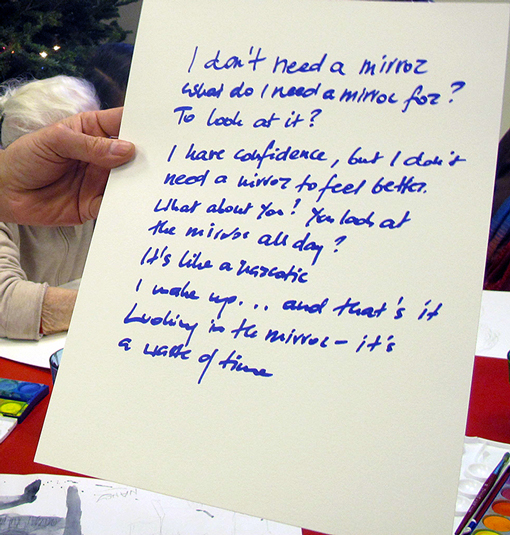 I don't need a mirror
what do I need a mirror for?
To look at it?
I have confidence, but I don't
need a mirror to feel better.
What about you? You look at
the mirror all day?
It's like a narcotic
I wake up... and that's it
Looking in the mirror - it's
a waste of time